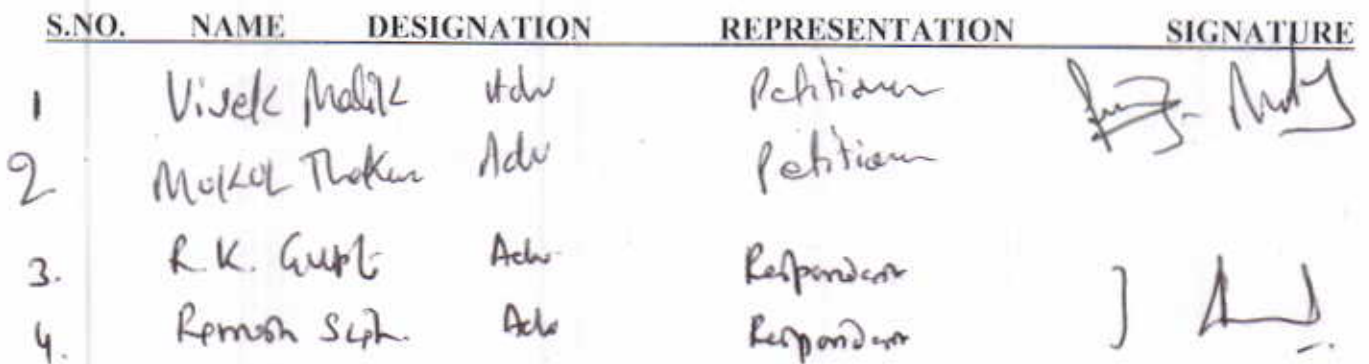 S.NO. NAME DESIGNATION REPRESENTATION SIGNATURE
1 Vivek Malik Adv Petitioner
2 Mukul Thakur Adv Petitioner
3. R.K. Gupta Adv Respondent
4. Ramesh Adv Respondent